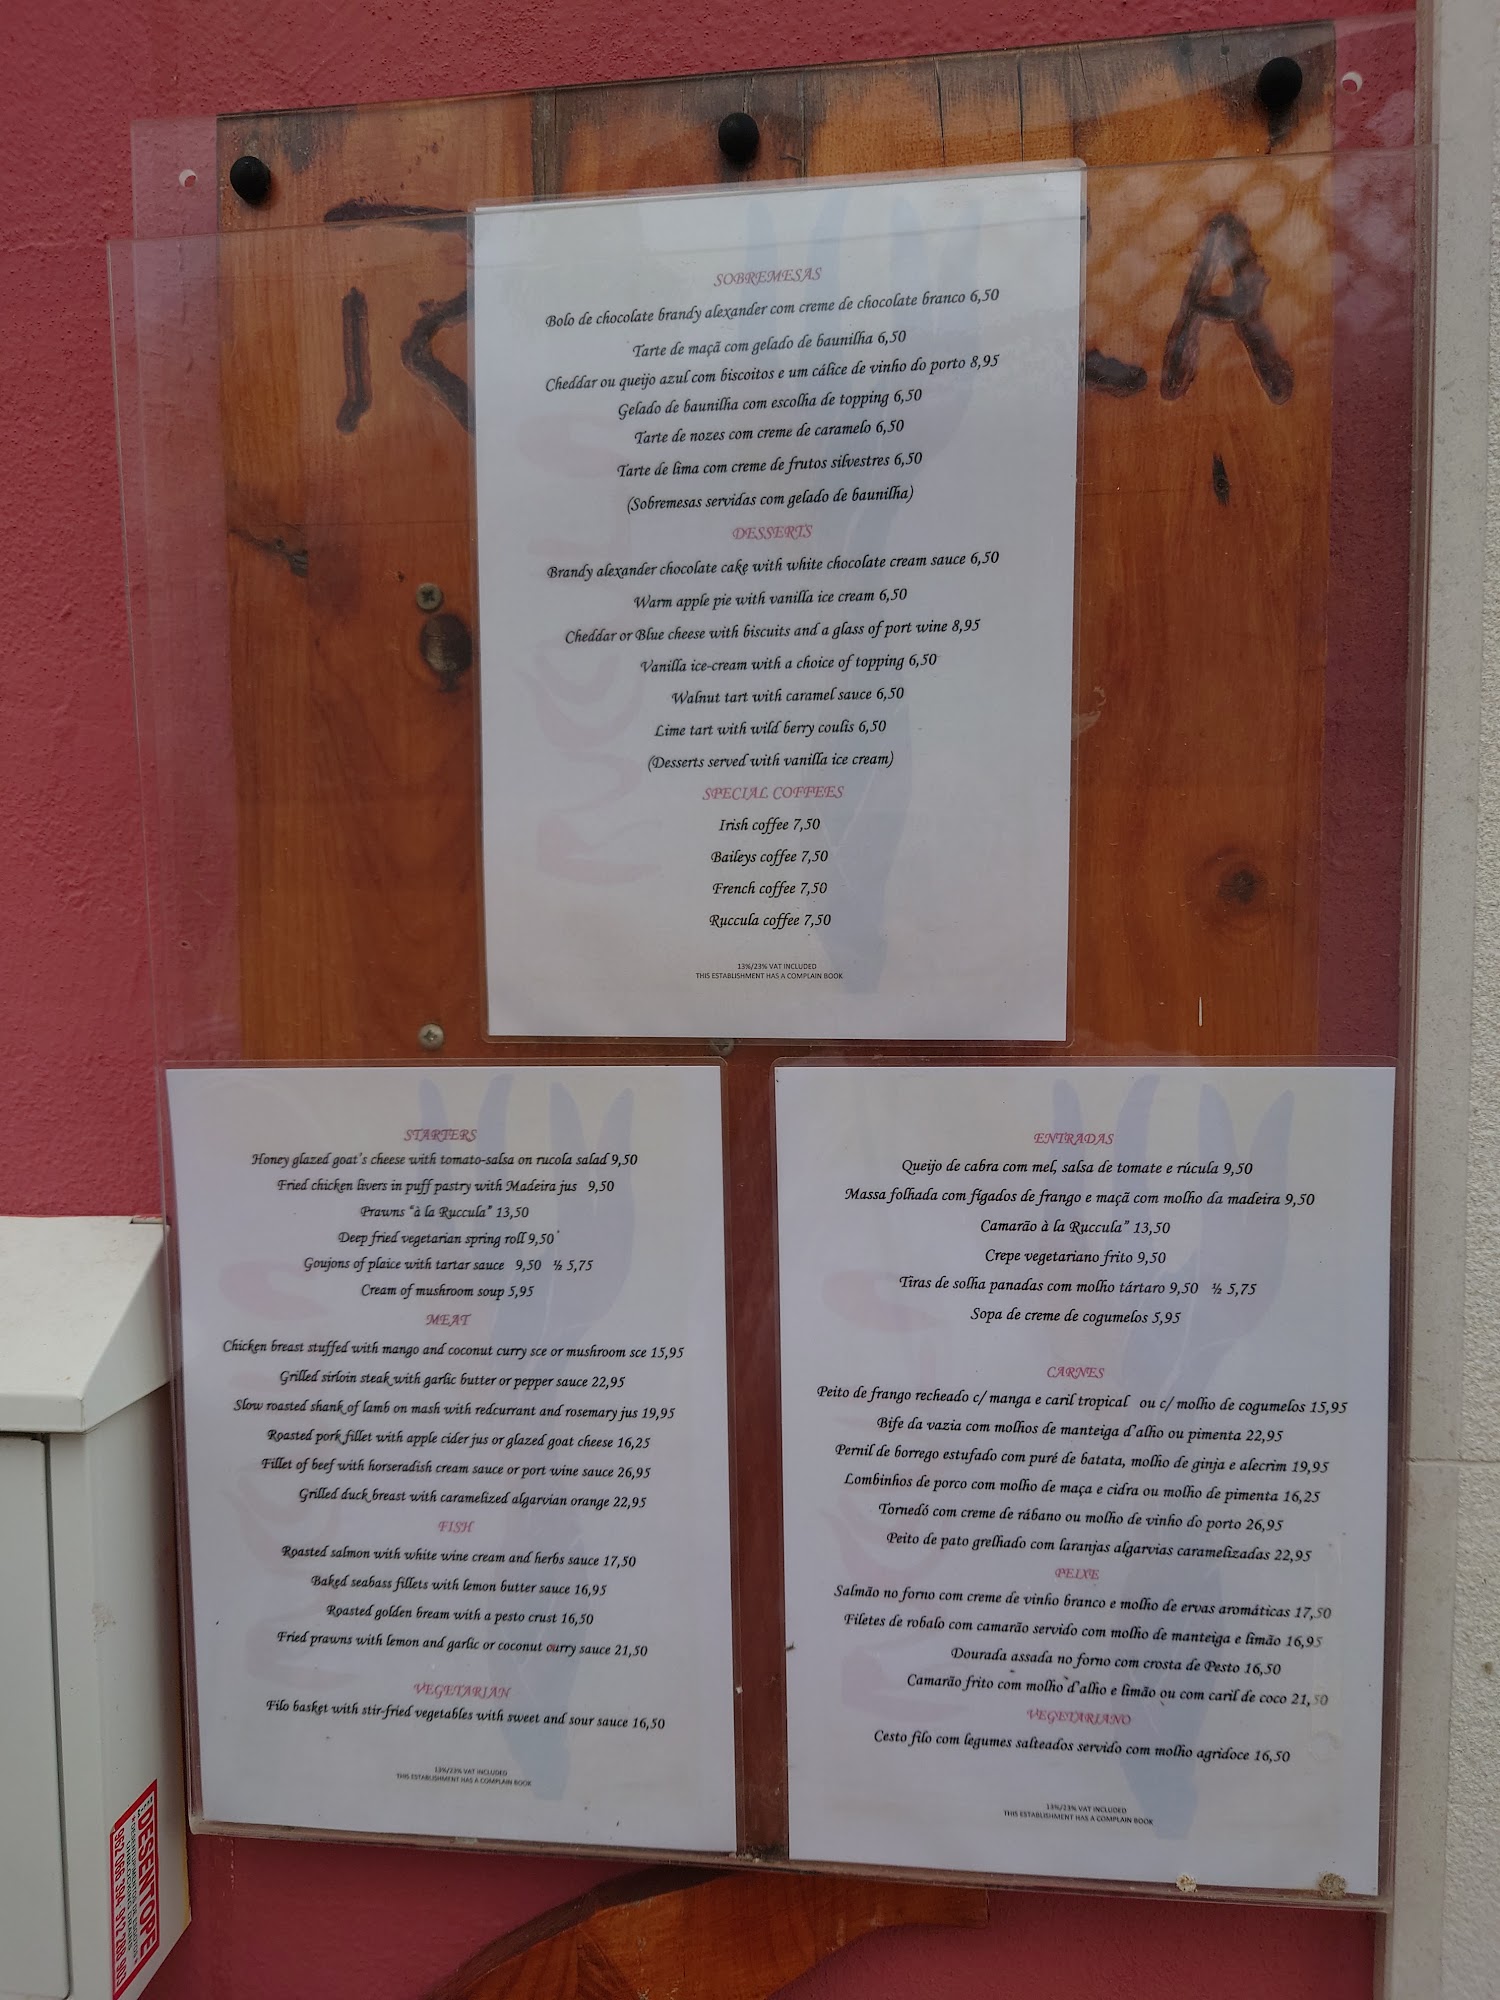 SOBREMESAS
Bolo de chocolate brandy alexander com creme de chocolate branco 6,50
Tarte de maçã com gelado de baunilha 6,50
Cheddar ou queijo azul com biscoitos e um cálice de vinho do porto 8,95
Gelado de baunilha com escolha de topping 6,50
Tarte de nozes com creme de caramelo 6,50
Tarte de lima com creme de frutos silvestres 6,50
(Sobremesas servidas com gelado de baunilha)
DESSERTS
Brandy alexander chocolate cake with white chocolate cream sauce 6,50
Warm apple pie with vanilla ice cream 6,50
Cheddar or Blue cheese with biscuits and a glass of port wine 8,95
Vanilla ice-cream with a choice of topping 6,50
Walnut tart with caramel sauce 6,50
Lime tart with wild berry coulis 6,50
(Desserts served with vanilla ice cream)
SPECIAL COFFEES
Irish coffee 7,50
Baileys coffee 7,50
French coffee 7,50
Ruccula coffee 7,50
13%/23% VAT INCLUDED
THIS ESTABLISHMENT HAS A COMPLAIN BOOK
STARTERS
Honey glazed goat's cheese with tomato-salsa on rucola salad 9,50
Fried chicken livers in puff pastry with Madeira jus 9,50
Prawns "à la Ruccula" 13,50
Deep fried vegetarian spring roll 9,50
Goujons of plaice with tartar sauce 9,50 ½ 5,75
Cream of mushroom soup 5,95
MEAT
Chicken breast stuffed with mango and coconut curry sce or mushroom sce 15,95
Grilled sirloin steak with garlic butter or pepper sauce 22,95
Slow roasted shank of lamb on mash with redcurrant and rosemary jus 19,95
Roasted pork fillet with apple cider jus or glazed goat cheese 16,25
Fillet of beef with horseradish cream sauce or port wine sauce 26,95
Grilled duck breast with caramelized algarvian orange 22,95
FISH
Roasted salmon with white wine cream and herbs sauce 17,50
Baked seabass fillets with lemon butter sauce 16,95
Roasted golden bream with a pesto crust 16,50
Fried prawns with lemon and garlic or coconut curry sauce 21,50
VEGETARIAN
Filo basket with stir-fried vegetables with sweet and sour sauce 16,50
13%/23% VAT INCLUDED
THIS ESTABLISHMENT HAS A COMPLAIN BOOK
ENTRADAS
Queijo de cabra com mel, salsa de tomate e rúcula 9,50
Massa folhada com fígados de frango e maçã com molho da madeira 9,50
Camarão à la Ruccula" 13,50
Crepe vegetariano frito 9,50
Tiras de solha panadas com molho tártaro 9,50 ½ 5,75
Sopa de creme de cogumelos 5,95
CARNES
Peito de frango recheado c/ manga e caril tropical ou c/ molho de cogumelos 15,95
Bife da vazia com molhos de manteiga d'alho ou pimenta 22,95
Pernil de borrego estufado com puré de batata, molho de ginja e alecrim 19,95
Lombinhos de porco com molho de maça e cidra ou molho de pimenta 16,25
Tornedó com creme de rábano ou molho de vinho do porto 26,95
Peito de pato grelhado com laranjas algarvias caramelizadas 22,95
PEIXE
Salmão no forno com creme de vinho branco e molho de ervas aromáticas 17,50
Filetes de robalo com camarão servido com molho de manteiga e limão 16,95
Dourada assada no forno com crosta de Pesto 16,50
Camarão frito com molho d'alho e limão ou com caril de coco 21,50
VEGETARIANO
Cesto filo com legumes salteados servido com molho agridoce 16,50
13%/23% VAT INCLUDED
THIS ESTABLISHMENT HAS A COMPLAIN BOOK
DESENTOPE